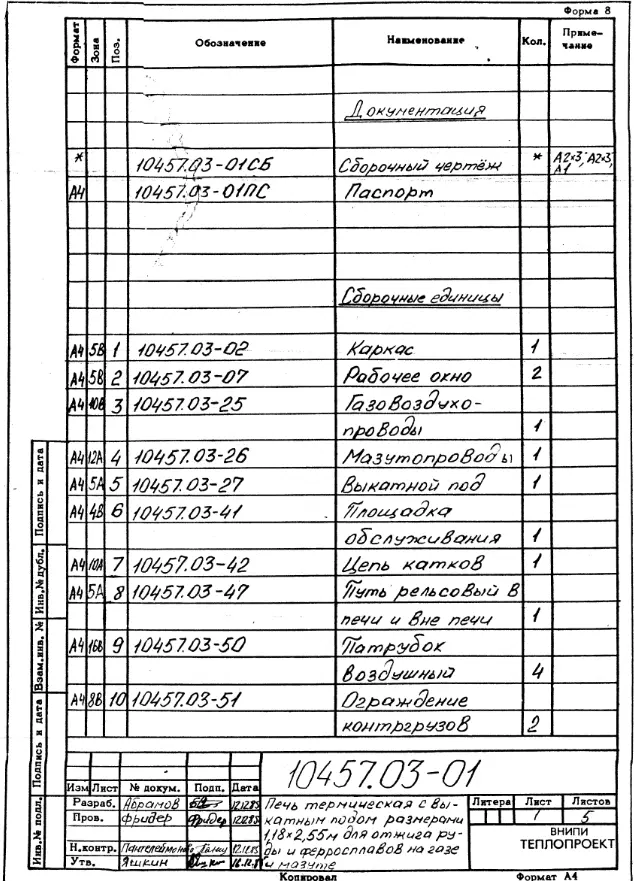 Форма 8
Формат Зона Поз. Обозначение Наименование Кол. Приме-
чание
Документация
* 10457.03-01СБ Сборочный чертёж * А2×3; А2×3,
А1
А4 10457.03-01ПС Паспорт
Сборочные единицы
А4 5В 1 10457.03-02 Каркас 1
А4 5В 2 10457.03-07 Рабочее окно 2
А4 10В 3 10457.03-25 Газовоздухо-
проводы 1
А4 12А 4 10457.03-26 Мазутопроводы 1
А4 5А 5 10457.03-27 Выкатной под 1
А4 4В 6 10457.03-41 Площадка
обслуживания 1
А4 10А 7 10457.03-42 Цепь катков 1
А4 5А 8 10457.03-47 Путь рельсовый в
печи и вне печи 1
А4 16В 9 10457.03-50 Патрубок
воздушный 4
А4 8В 10 10457.03-51 Ограждение
контргрузов 2
Подпись и дата
Инв.№ дубл.
Взам.инв. №
Подпись и дата
Инв.№ подл.
10457.03-01
Изм Лист № докум. Подп. Дата
Разраб. Абрамов 12.12.85
Пров. Фридер Фридер 12.12.85
Н.контр. Пантелеймонов 12.12.85
Утв. Яшкин 16.12.8
Печь термическая с вы-
катным подом размерами
1,18×2,55м для отжига ру-
ды и ферросплавов на газе
и мазуте
Литера Лист Листов
1 5
ВНИПИ
ТЕПЛОПРОЕКТ
Копировал Формат А4